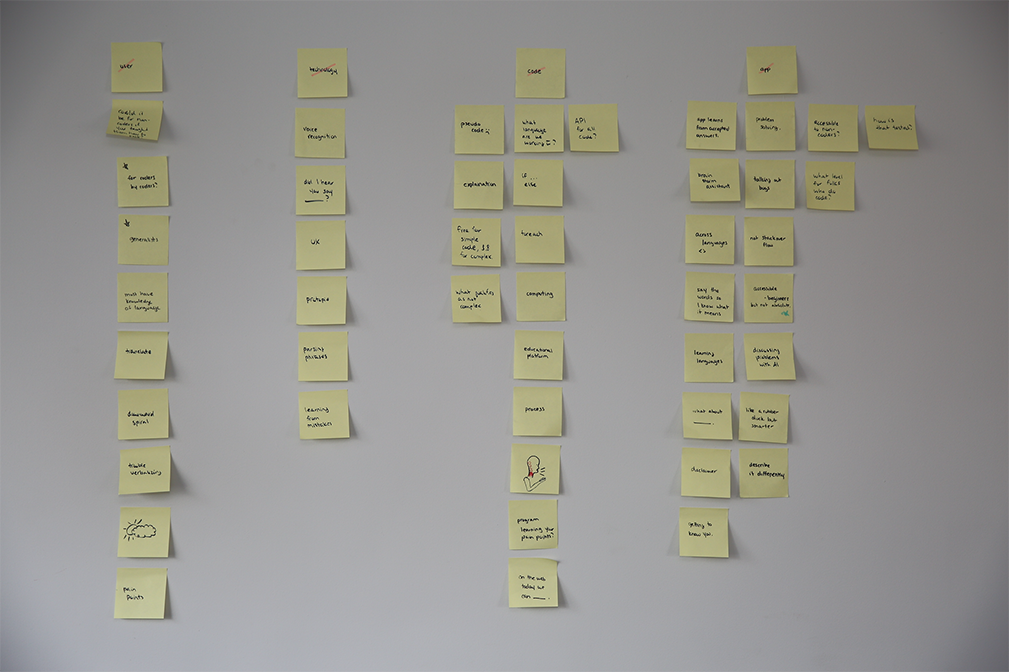 user
for coders
by coders?
generalists
must have
knowledge
of language
translate
downward
spiral
trouble
verbalizing
pain
points
technology
voice
recognition
did I hear
you say
____?
UX
parsing
phrases
learning
from
mistakes
code
pseudo
code
what
language
are we
working
API
for all
code?
explanation
if ...
else
free for
simple
code, $$
for complex
foreach
what
as not
complex
computing
educational
platform
process
program
learning your
pain points?
on the web
today we
can ____.
app
app learns
from accepted
answers.
problem
solving.
Accessible
to non-
coders?
how is
that tested?
brain
storm
assistant
talking at
bugs
what level
for folks
who do
code?
across
languages
<>
not stackover
flow
say the
words so
I know what
it means
accessible
- beginners
but not absolute
learning
languages
discussing
problems
with AI
what about
____.
like a rubber
duck but
smarter
disclaimer
describe
it differently
getting to
know you.